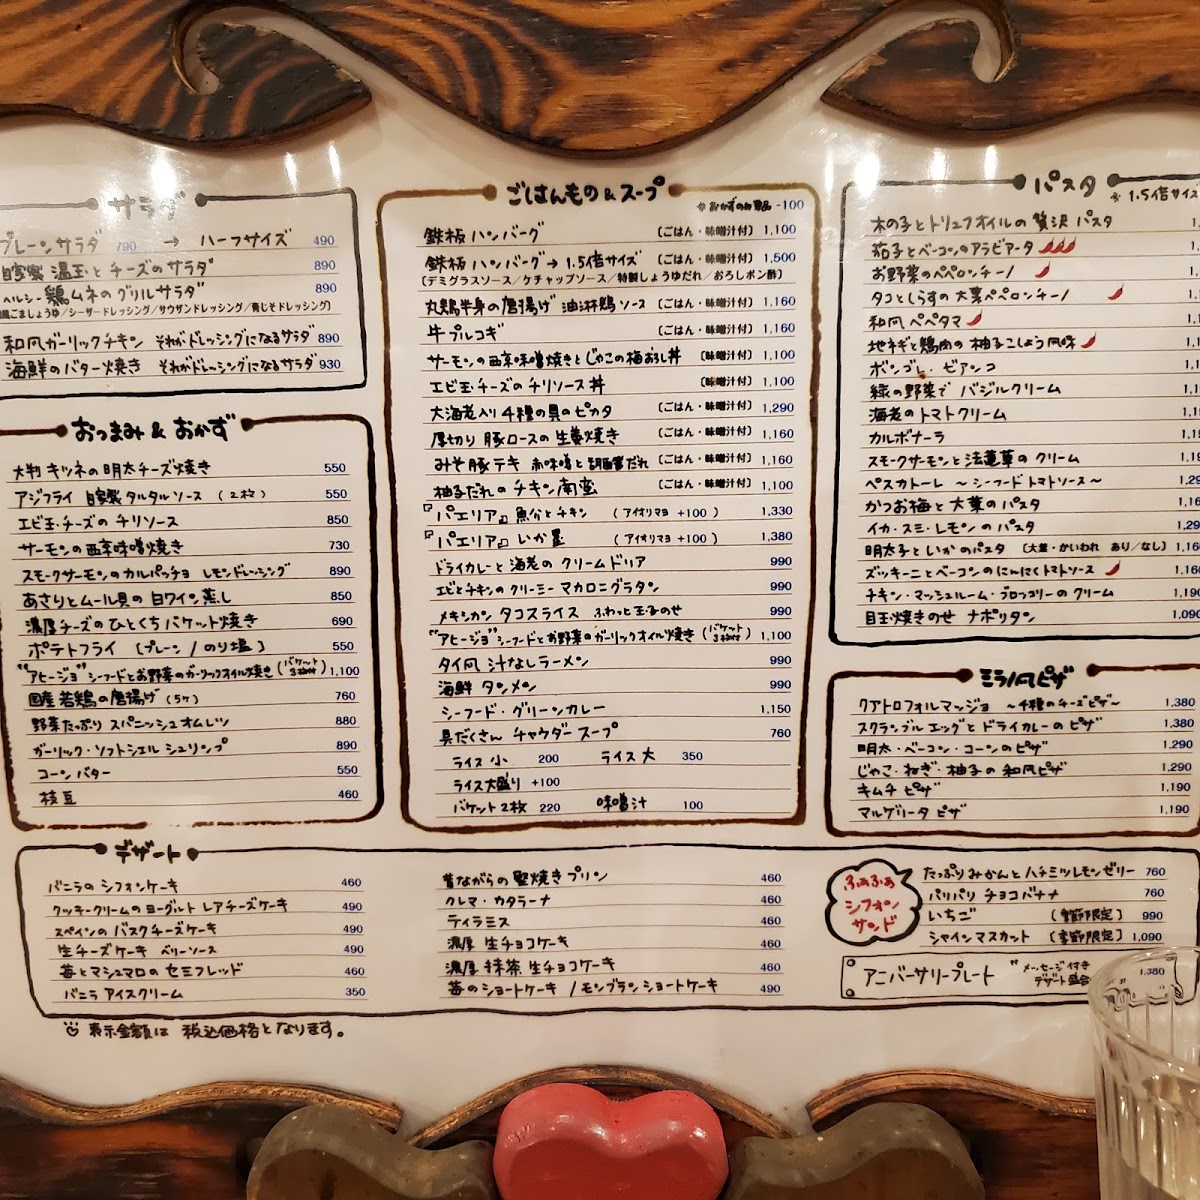 サラダ
プレーンサラダ 790 → ハーフサイズ 490
自家製 温玉とチーズのサラダ 890
ヘルシー 鶏ムネのグリルサラダ 890
ごましょうゆ／シーザードレッシング／サウザンドレッシング／青じそドレッシング)
和風ガーリックチキン それがドレッシングになるサラダ 890
海鮮のバター焼き それがドレッシングになるサラダ 930
おつまみ & おかず
大判 キツネの明太チーズ焼き 550
アジフライ 自家製タルタルソース (2枚) 550
エビ玉・チーズの チリソース 850
サーモンの西京味噌焼き 730
スモークサーモンのカルパッチョ レモンドレッシング 890
あさりとムール貝の白ワイン蒸し 850
濃厚チーズのひとくちバケット焼き 690
ポテトフライ [プレーン / のり塩] 550
"アヒージョ" シーフードとお野菜のガーリックオイル焼き (バケット3枚付) 1,100
国産若鶏の唐揚げ (5ヶ) 760
野菜たっぷり スパニッシュオムレツ 880
ガーリック・ソフトシェル シュリンプ 890
コーンバター 550
枝豆 460
ごはんもの & スープ
※おかずのみ単品 -100
鉄板 ハンバーグ 〔ごはん・味噌汁付〕 1,100
鉄板 ハンバーグ → 1.5倍サイズ 〔ごはん・味噌汁付〕 1,500
〔デミグラスソース／ケチャップソース／特製しょうゆだれ／おろしポン酢〕
丸鶏半身の唐揚げ 油淋鶏ソース 〔ごはん・味噌汁付〕 1,160
牛プルコギ 〔ごはん・味噌汁付〕 1,160
サーモンの西京味噌焼きとじゃこの梅おろし丼 〔味噌汁付〕 1,100
エビ玉・チーズのチリソース丼 〔味噌汁付〕 1,100
大海老入り4種の具のピカタ 〔ごはん・味噌汁付〕 1,290
厚切り豚ロースの生姜焼き 〔ごはん・味噌汁付〕 1,160
みそ豚テキ 赤味噌と胡麻だれ 〔ごはん・味噌汁付〕 1,160
柚子だれのチキン南蛮 〔ごはん・味噌汁付〕 1,100
『パエリア』魚介とチキン (アイオリマヨ +100) 1,330
『パエリア』いか墨 (アイオリマヨ +100) 1,380
ドライカレーと海老のクリームドリア 990
エビとチキンのクリーミーマカロニグラタン 990
メキシカンタコスライス ふわっと玉子のせ 990
"アヒージョ" シーフードとお野菜のガーリックオイル焼き (バケット3枚付) 1,100
タイ風 汁なしラーメン 990
海鮮 タンメン 990
シーフード・グリーンカレー 1,150
具だくさん チャウダースープ 760
ライス 小 200 ライス 大 350
ライス大盛り +100
バケット2枚 220 味噌汁 100
パスタ
※1.5倍サイズ
木の子とトリュフオイルの贅沢パスタ
茄子とベーコンのアラビアータ
お野菜のペペロンチーノ
タコとしらすの大葉ペペロンチーノ
和風ペペタマ
地ネギと鶏肉の柚子こしょう風味
ボンゴレ・ビアンコ
緑の野菜で バジルクリーム
海老のトマトクリーム
カルボナーラ
スモークサーモンと法蓮草のクリーム
ペスカトーレ 〜シーフードトマトソース〜
かつお梅と大葉のパスタ
イカ・スミ・レモンのパスタ
明太子といかのパスタ 〔大葉・かいわれ あり／なし〕
ズッキーニとベーコンのにんにくトマトソース
チキン・マッシュルーム・ブロッコリーのクリーム 1,190
目玉焼きのせ ナポリタン 1,090
ミラノ風ピザ
クアトロフォルマッジョ 〜4種のチーズピザ〜 1,380
スクランブルエッグとドライカレーのピザ 1,380
明太・ベーコン・コーンのピザ 1,290
じゃこ・ねぎ・柚子の和風ピザ 1,290
キムチピザ 1,190
マルゲリータピザ 1,190
デザート
バニラのシフォンケーキ 460
クッキークリームのヨーグルトレアチーズケーキ 490
スペインのバスクチーズケーキ 490
生チーズケーキ ベリーソース 490
苺とマシュマロのセミフレッド 460
バニラアイスクリーム 350
昔ながらの堅焼きプリン 460
クレマ・カタラーナ 460
ティラミス 460
濃厚 生チョコケーキ 460
濃厚 抹茶 生チョコケーキ 460
苺のショートケーキ / モンブランショートケーキ 490
ふぁふぁ
シフォン
サンド
たっぷりみかんとハチミツレモンゼリー 760
パリパリ チョコバナナ 760
いちご [季節限定] 990
シャインマスカット [季節限定] 1,090
アニバーサリープレート "メッセージ付き デザート盛合 1,380
表示金額は 税込価格となります。